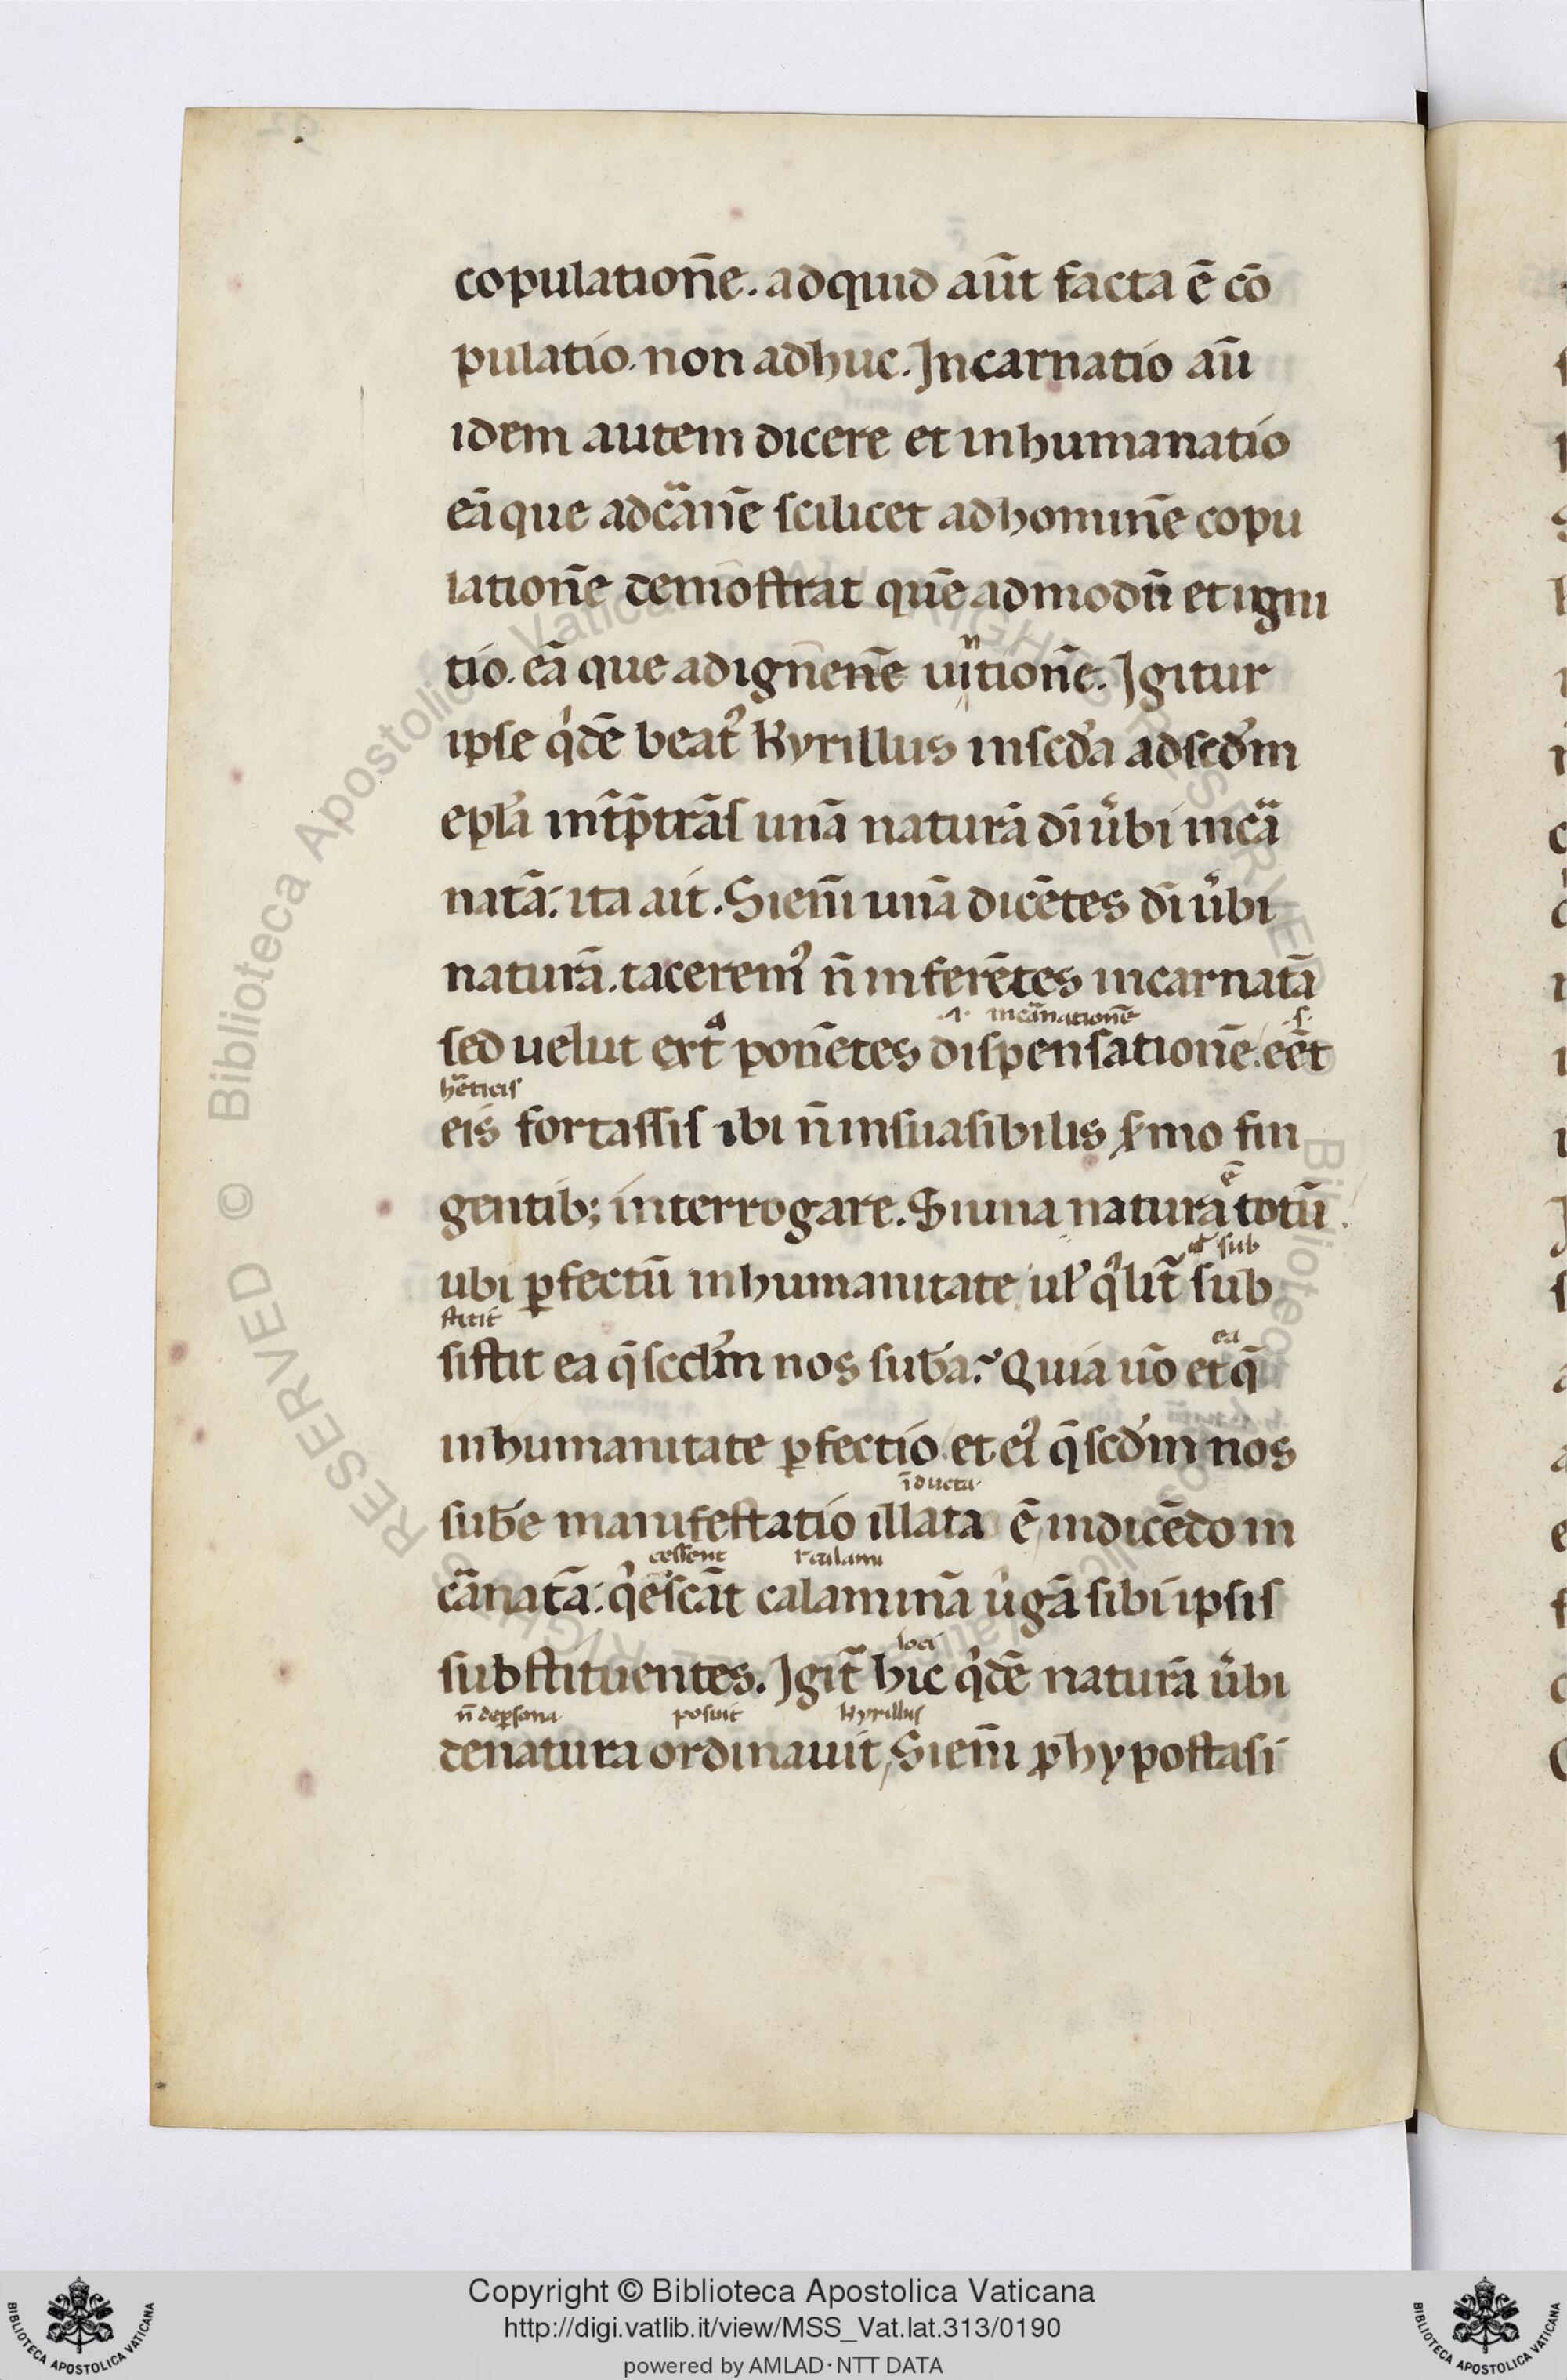 copulation̄e. adquid aūt facta ē cō
pulatio. non adhuc. Incarnatio aū
idem autem dicere et inhumanatio
eā que adcar̄nē scilicet adhominē copu
lation̄e demōstrat quē admodū et igni
tio. eā que adignen̄e unitionē. Igitur
ipse q'dē beatꝰ Kyrillus inscďa adscďm
epľa int̄p̄trās unā naturā dī ůbi incā
natā: ita ait. Sienī unā dicētes dī ůbi
naturā. taceremꝰ n̄ inferētes incarnatā
.i. incānationē .s.
sed uelut extᵃ̄ ponētes dispensationē. eēt
hēticis
eis fortassis ibi n̄ insuasibilis s̄mo fin
ē
gentib; interrogare. Si una natura totū
ł sub
ubi ꝑfectū inhumanitate uł qᵒlit̄ sub
stitit
ea
sistit ea q̄ scďm nos suba̅? Quia ūo et q̄
inhumanitate ꝑfectio et eiꝰ q̄ scďm nos
īducta
sub̄e manifestatio illata ē indicēdo in
cessent
cānatā: q'escāt calaminā ůgā sibi ipsis
loci
substituentes. Igit̄ hic q'dē naturā ůbi
n̄ deꝑsona posuit Kyrillus
denatura ordinauit, Sienī ꝓ hypostasi
Copyright © Biblioteca Apostolica Vaticana
http://digi.vatlib.it/view/MSS_Vat.lat.313/0190
powered by AMLAD·NTT DATA
BIBLIOTECA APOSTOLICA VATICANA
BIBLIOTECA APOSTOLICA VATICANA